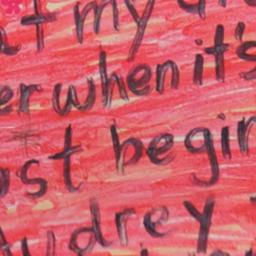 at my
er when it's
ust begin
Audrey